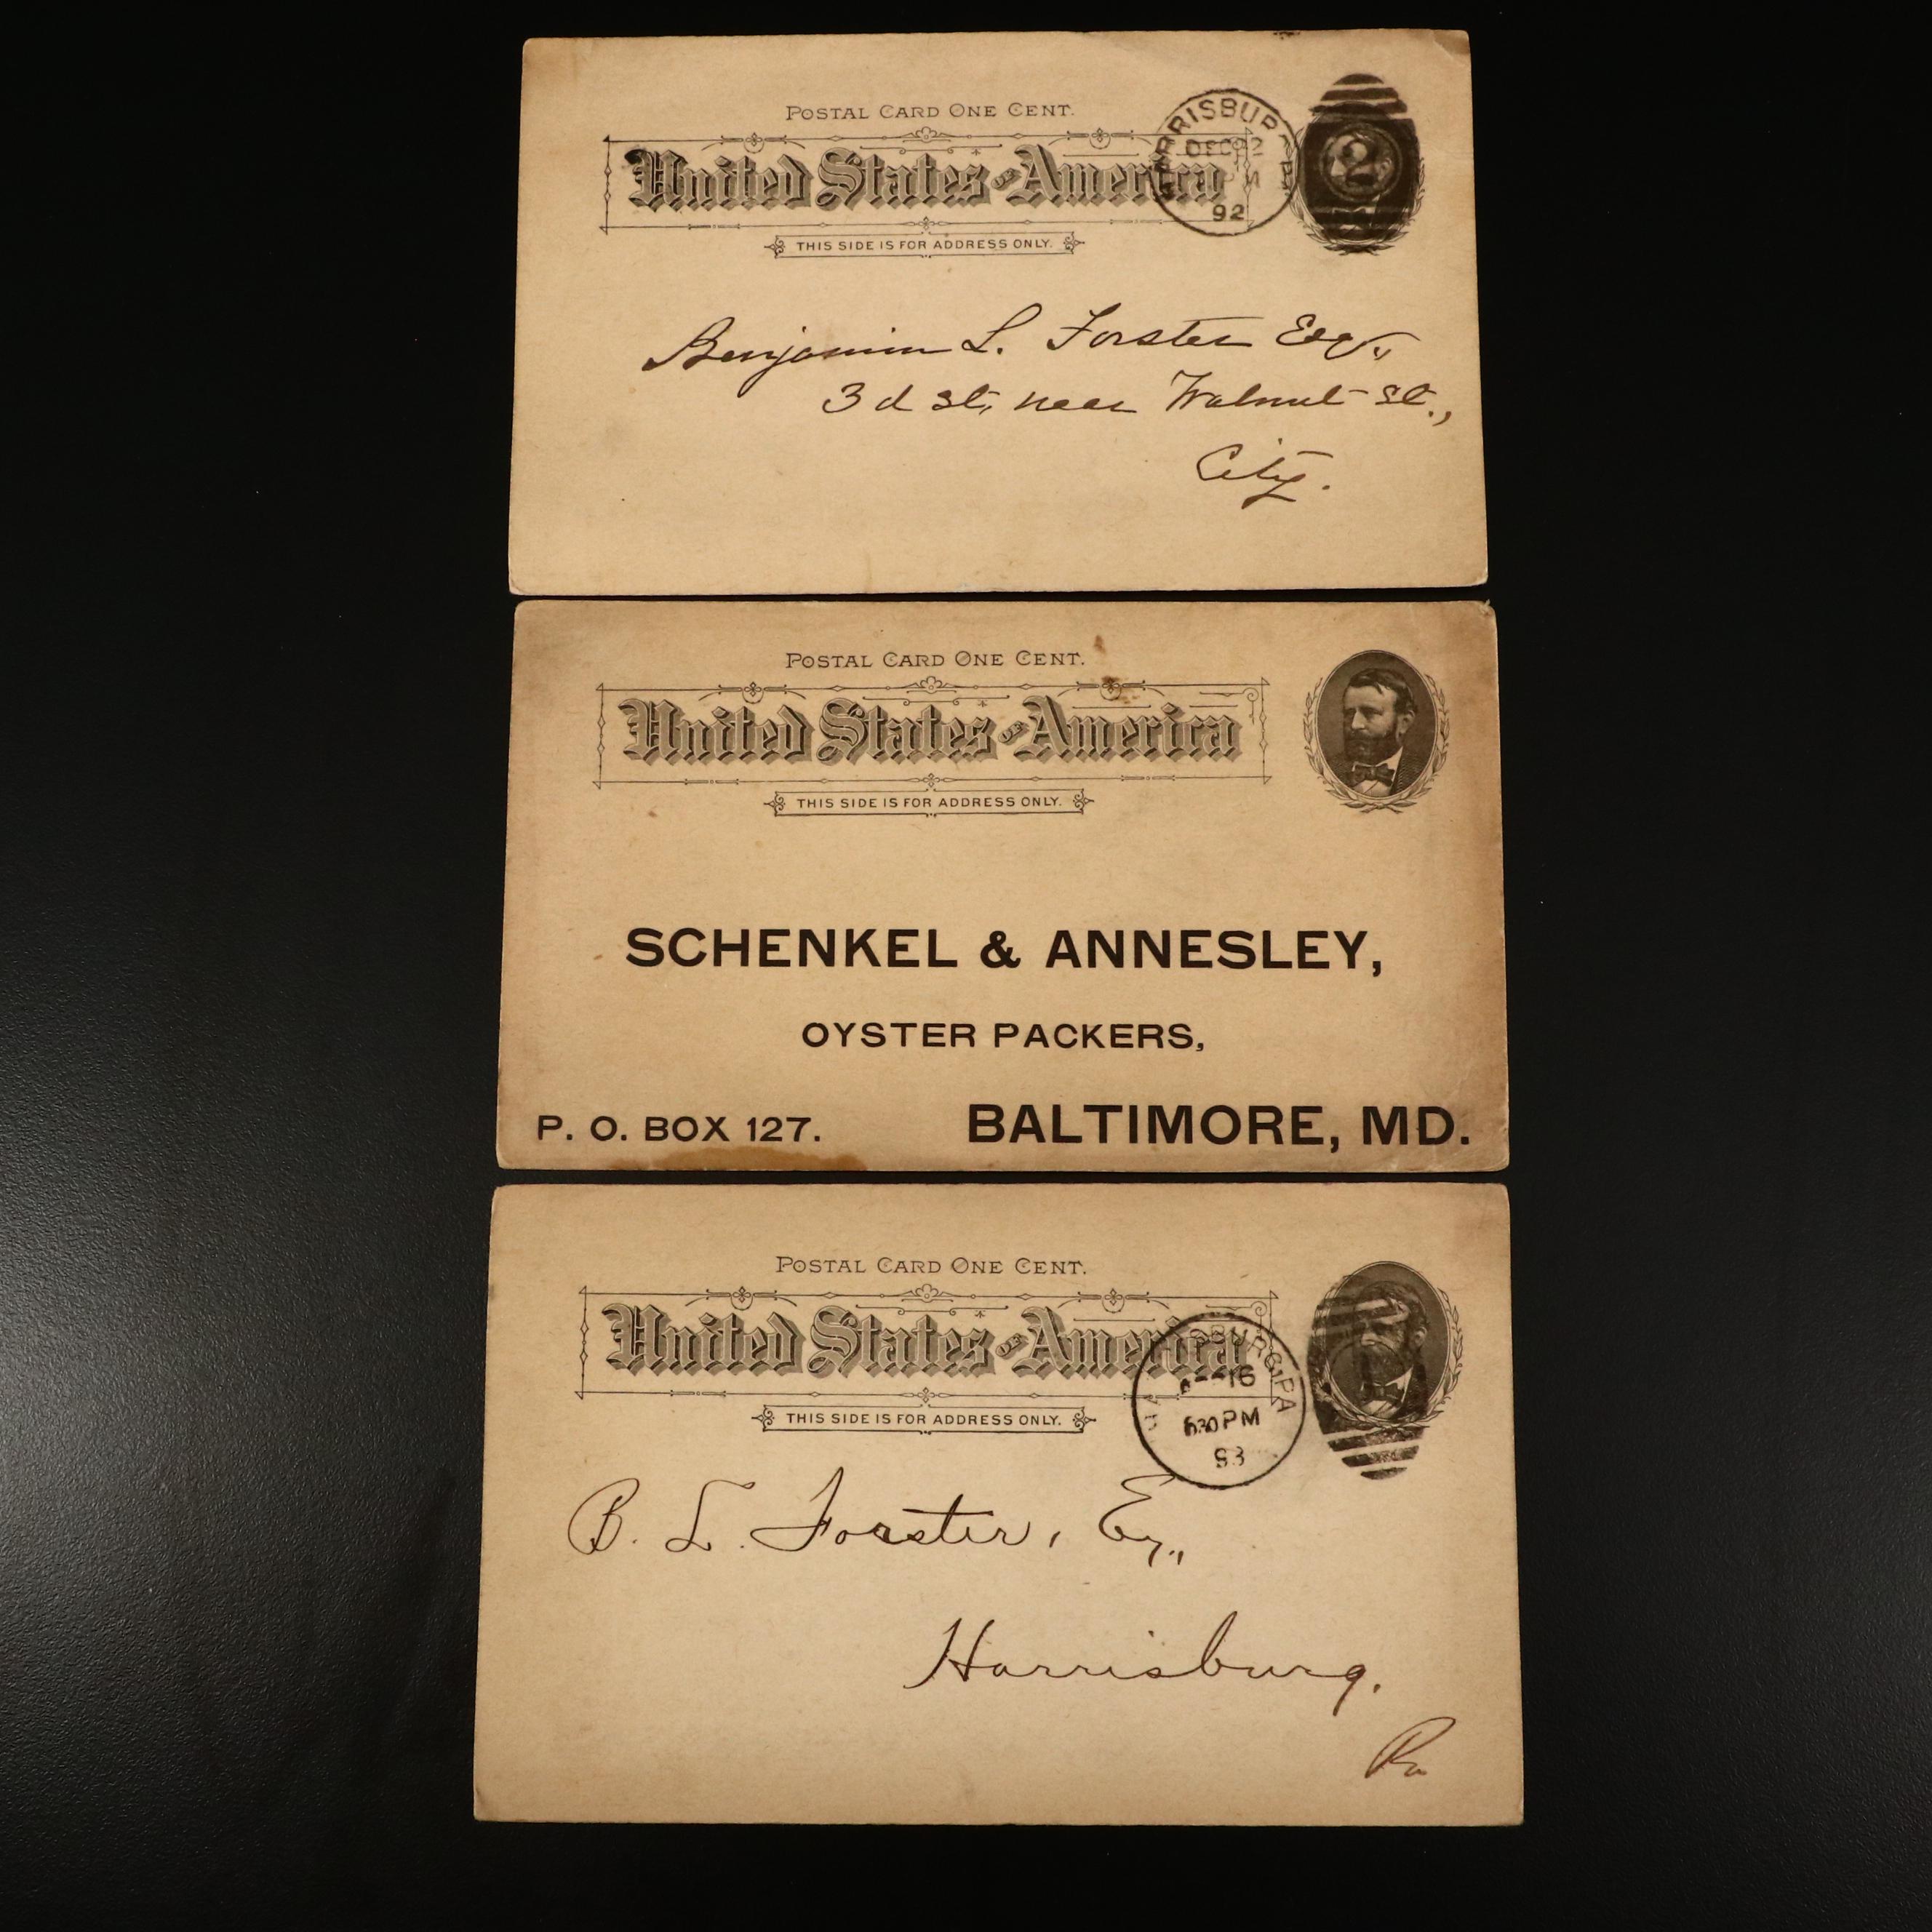 POSTAL CARD ONE CENT.
United States of America
THIS SIDE IS FOR ADDRESS ONLY.
HARRISBURG PA.
DEC 2
PM
92
2
Benjamin L. Forster Esq.,
3d St, near Walnut St.,
City.
POSTAL CARD ONE CENT.
United States of America
THIS SIDE IS FOR ADDRESS ONLY.
SCHENKEL & ANNESLEY,
OYSTER PACKERS,
P. O. BOX 127. BALTIMORE, MD.
POSTAL CARD ONE CENT.
United States of America
THIS SIDE IS FOR ADDRESS ONLY.
HARRISBURG, PA
16
630 PM
93
B. L. Forster, Esq.,
Harrisburg.
Pa